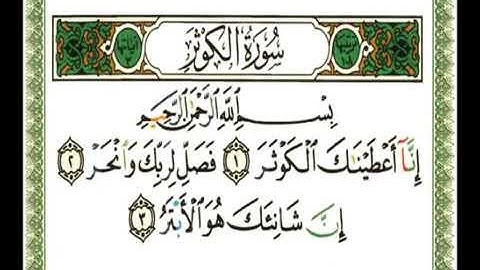 سُورَةُ الكَوْثَرِ
بِسْمِ اللَّهِ الرَّحْمَٰنِ الرَّحِيمِ
إِنَّآ أَعْطَيْنَٰكَ الْكَوْثَرَ ١ فَصَلِّ لِرَبِّكَ وَانْحَرْ ٢
إِنَّ شَانِئَكَ هُوَ الْأَبْتَرُ ٣